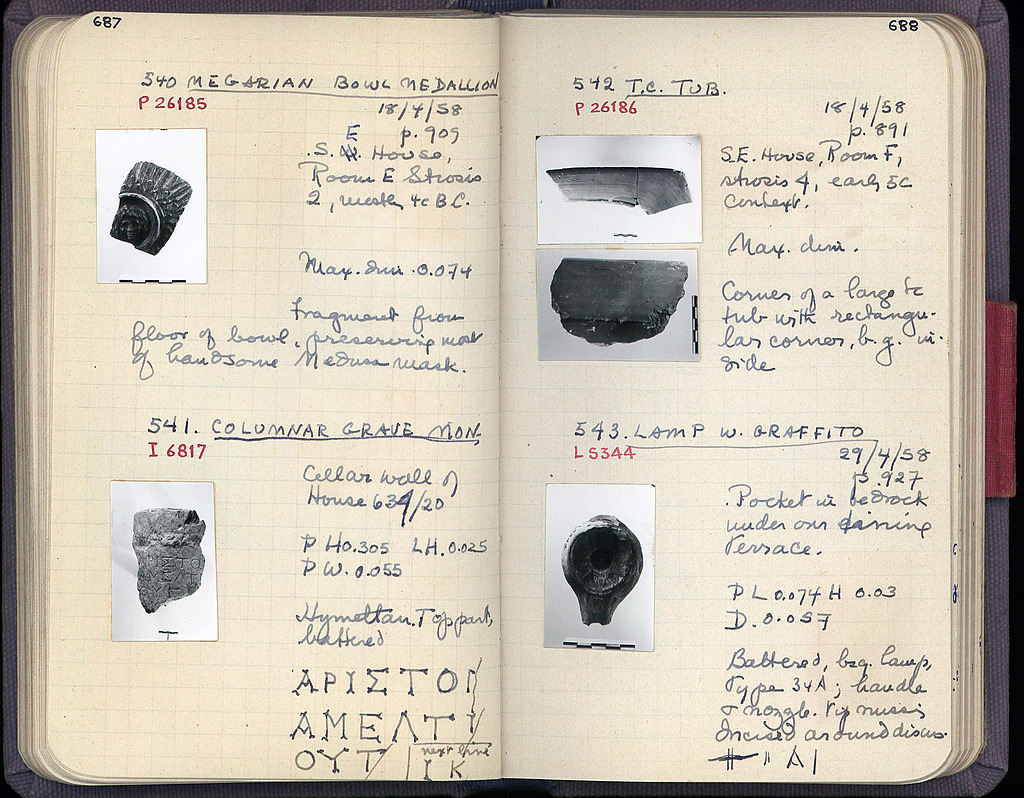 687
540 MEGARIAN BOWL MEDALLION
P 26185
18/4/58
p. 909
E
S. W. House,
Room E Strosis
2, mostly 4c B.C.
Max. dim. 0.074
Fragment from
floor of bowl, preserving most
of handsome Medusa mask.
541. COLUMNAR GRAVE MON.
I 6817
Cellar wall of
House 634/20
P H 0.305 LH. 0.025
P W. 0.055
Hymettan. Top part,
battered
ΑΡΙΣΤΟ
ΑΜΕΛΤ
ΟΥΤ
next line
ΙΚ
688
542 T.C. TUB.
P 26186
18/4/58
p. 891
S.E. House, Room F,
strosis 4, early 5c
context.
Max. dim.
Corner of a large tc
tub with rectangu-
lar corner, b.g. in-
side
543. LAMP W. GRAFFITO
L 5344
29/4/58
p. 927
Pocket in bedrock
under our dining
terrace.
P L 0.074 H 0.03
D. 0.057
Battered, b.g. lamp,
Type 34A; handle
& nozzle tip missing
Incised around discus.
A